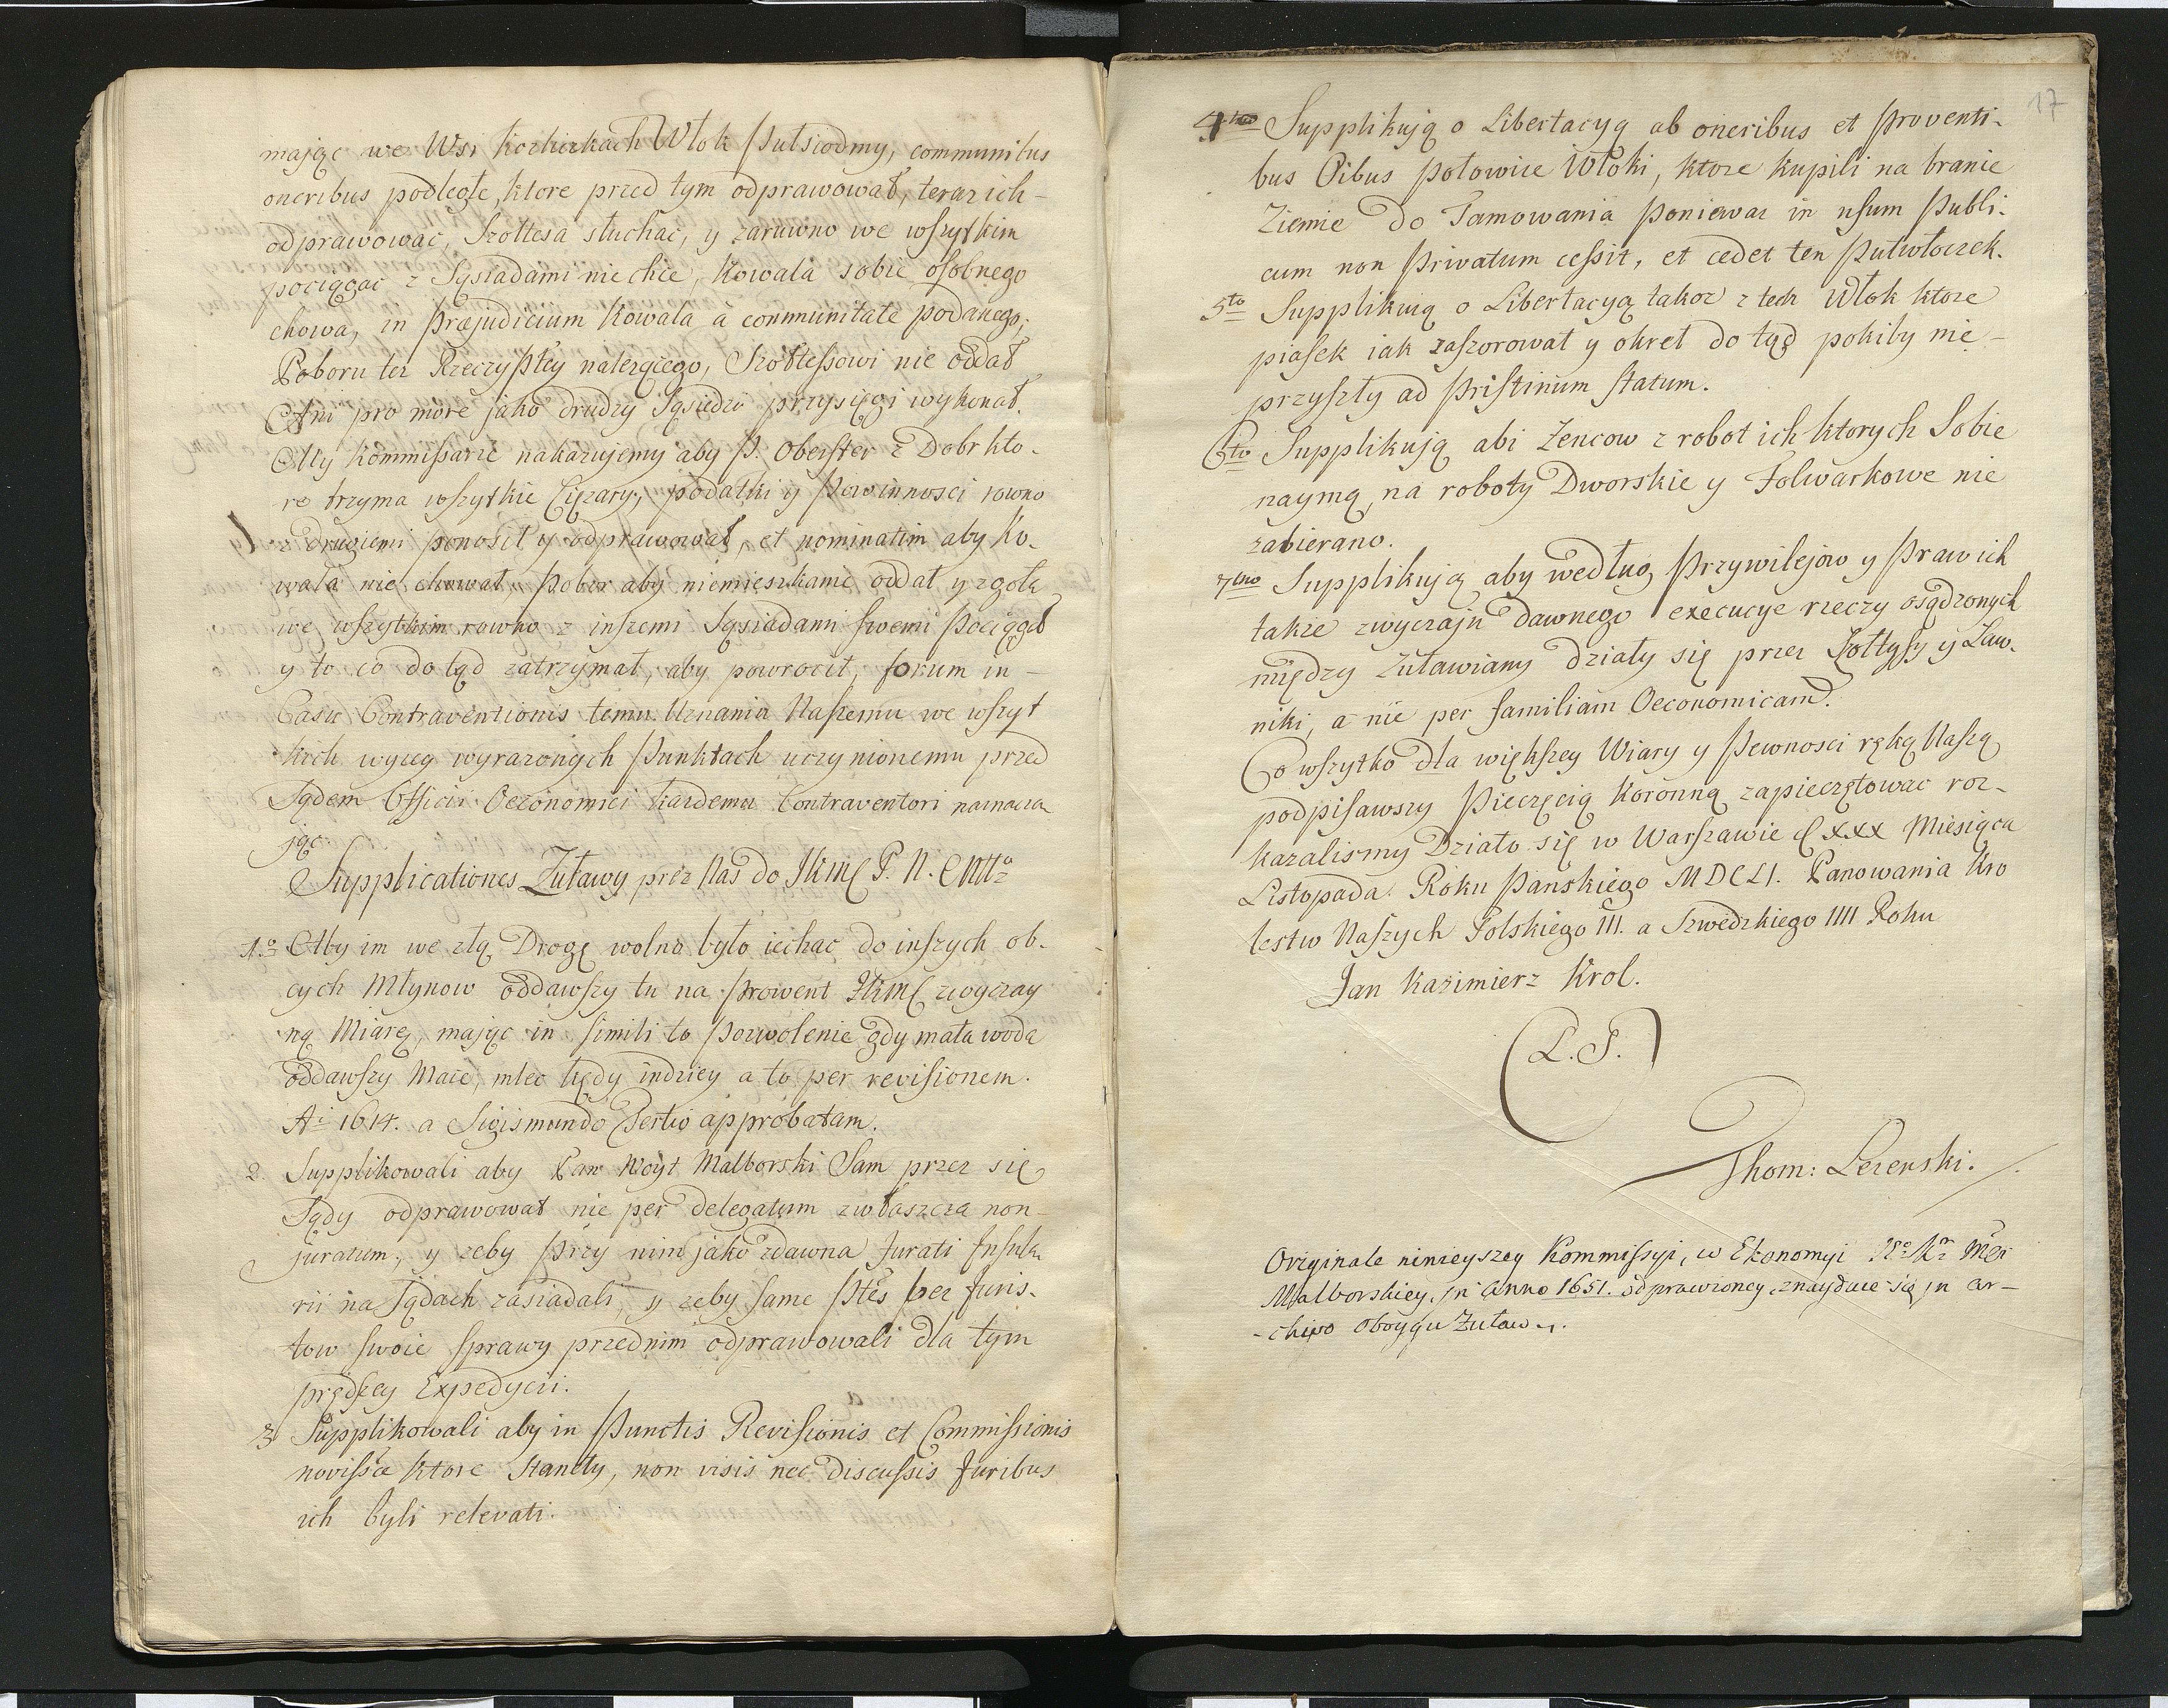 mając we Wsi Kozliczkach Włok Pułsiodmy, communibus
oneribus podległe, ktore przed tym odprawował, teraz ich
odprawować, Szołtesa słuchać, y zarowno we wszytkim
pociągać z Sąsiadami nie chce, Kowala sobie osobnego
chowa, in Præjudicium Kowala à communitate podanego;
Poboru tez Rzeczyptey nalezącego, Szołtessowi nie oddał
Ani pro more jako drudzy Sąsiedzi przysięgi wykonał.
My Kommissarze nakazujemy aby P. Oberster z Dobr kto-
re trzyma wszytkie Cięzary, podatki y Powinnosci rowno
z drugiemi ponosił y odprawował, et nominatim aby Ko-
wala nie chował, Pobor aby niemieszkanie oddał y zgoła
we wszytkim rowno z inszemi Sąsiadami swemi Pociągał
y to co do tąd zatrzymał, aby powrocił, forum in
Casu Contraventionis temu Uznaniu Naszemu we wszyt
kich wyzey wyrazonych Punktach uczynionemu przed
Sądem Officii Oeconomici kazdemu Contraventori naznacza
jąc.
Supplicationes Zuławy przez Nas do JKMC P. N. Młło
1o Aby im we złą Drogę wolno było iechac do inszych ob-
cych Młynow oddawszy tu na Prowent JKMC zwyczay
ną Miarę, mając in simili to Pozwolenie gdy mała woda
oddawszy Macę, mlec kędy indziey a to per revisionem.
Ai 1614. a Sigismundo Tertio approbatam.
2. Supplikowali aby Pan Woyt Malborski Sam przez się
Sądy odprawował nie per delegatum zwłaszcza non
juratum, y zeby przy nim jako zdawna Jurati Insula
rii na Sądach zasiadali, y zeby same Ptes bez Juris-
tow swoie sprawy przednim odprawowali dla tym
prędszey Expedycii.
3 Supplikowali aby in Punctis Revisionis et Commissionis
novissæ ktore stanęły, non visis nec discussis Juribus
ich byli relevati.
17
4to Supplikują o Libertacyą ab oneribus et Proventi-
bus Oibus połowice Włoki, ktore kupili na branie
Ziemie do Tamowania Poniewaz in usum Publi-
cum non Privatum cessit, et cedet ten Pułwłoczek.
5to Supplikuią o Libertacyą takoz z tech Włok ktore
piasek iak zaszorował y okrel do tąd pokiby nie
przyszły ad Pristinum statum.
6to Supplikują abi Zencow z robot ich ktorych Sobie
naymą, na roboty Dworskie y Folwarkowe nie
zabierano.
7mo Supplikują aby według Przywilejow y Praw ich
takze zwyczaju dawnego execucye rzeczy osądzonych
między Zuławiany działy się przez Szołtysy y Ław-
niki, a nie per familiam Oeconomicam.
Co wszytko dla większey Wiary y Pewnosci ręką Naszą
podpisawszy Pieczęcią Koronną zapieczętowac roz-
kazalismy Działo się w Warszawie d XXX Miesiąca
Listopada Roku Panskiego MDCLI. Panowania Kro
lestw Naszych Polskiego III. a Szwedzkiego IIII Roku
Jan Kazimierz Krol.
(L.S.)
Thom: Lezenski.
Originale ninieyszey Kommissyi, w Ekonomyi
Malborskiey, in Anno 1651. odprawioney, znayduie się in Ar-
-chivo oboygu Zuław.